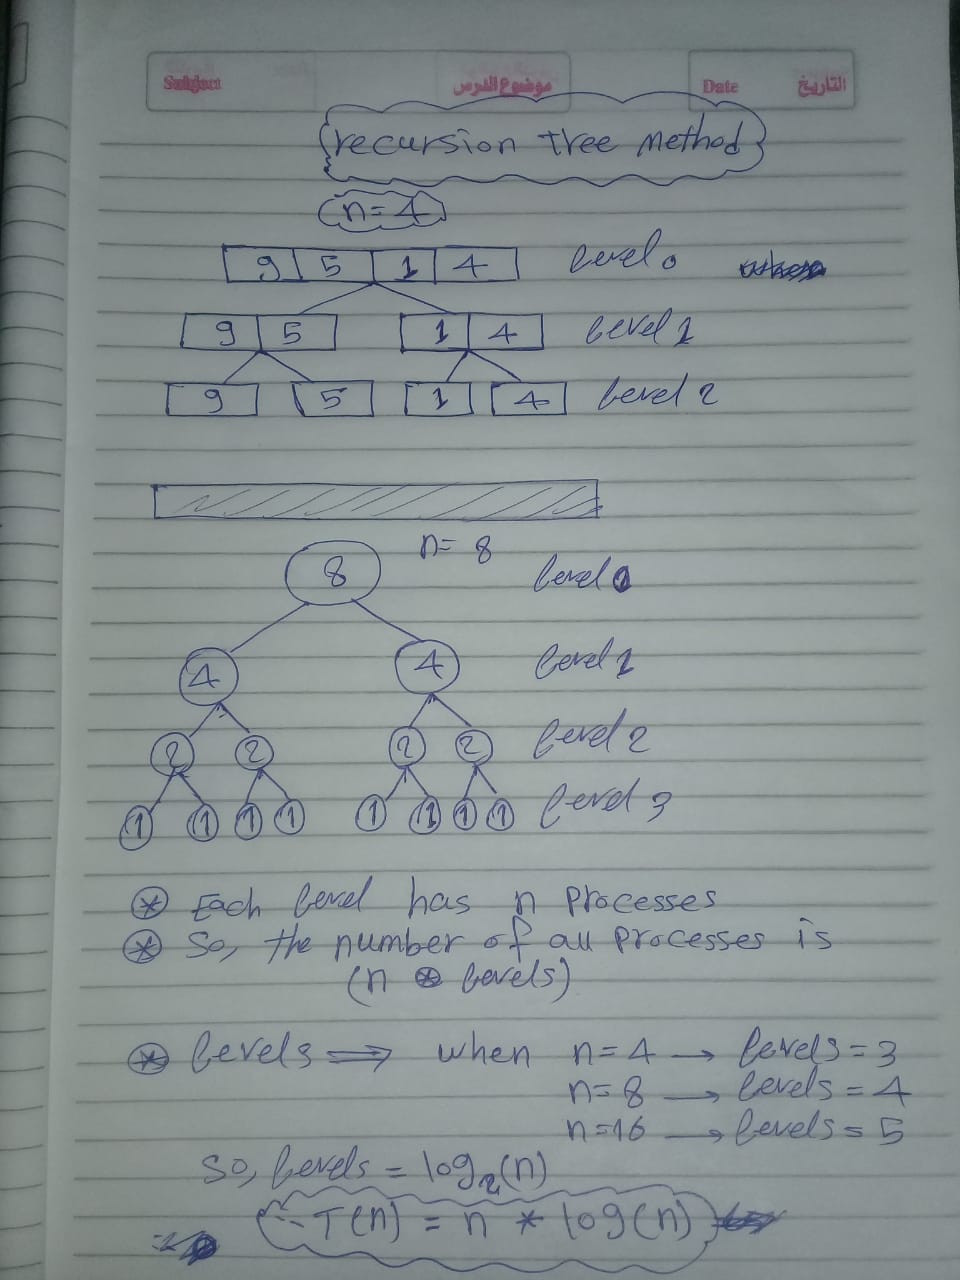 Subject موضوع الدرس Date التاريخ
recursion tree method
n=4
9 5 1 4 level 0
9 5 1 4 level 1
9 5 1 4 level 2
n= 8
8 level 0
4 4 level 1
2 2 2 2 level 2
1 1 1 1 1 1 1 1 level 3
* Each level has n processes
* So, the number of all processes is
(n * levels)
* levels ⇒ when n=4 → levels=3
n=8 → levels=4
n=16 → levels=5
So, levels = log₂(n)
∴ T(n) = n * log(n)